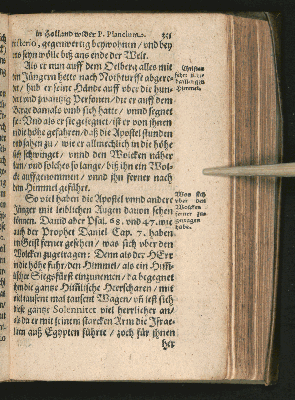 in Holland wider P. Plancium.
nisterio, gegenwertig beywohnen / vnd bey
seyn wölle biß ans ende der Welt.
Als er nun auff dem Oelberg alles mit
Jüngern hette nach Notturfft abgere-
/ hub er seine Hände auff vber die hun-
vnd zwantzig Personen / die er auff dem
Berge damals vmb sich hatte / vnnd segnet
sie: Vnd als er sie gesegnet / ist er von ihnen
die höhe gefahren / daß die Apostel stunden
sahen zu / wie er allmechlich in die höhe
sich schwinget / vnnd den Wolcken näher
/ vnd solches so lange / biß ihn ein Wol-
auffgenommen / vnnd ihn ferner nach
den Himmel geführt.
So viel haben die Apostel vnnd andere
Jünger mit leiblichen Augen davon sehen
können. David aber Psal. 68. vnd 47. wie
auch der Prophet Daniel Cap. 7. haben
im Geist ferner gesehen / was sich vber den
Wolcken zugetragen: Denn als der HErr
in die höhe fuhr / den Himmel / als ein
Siegsfürst einzunemen / da begegnet
ihm die gantze Himlische Heerscharen / mit
viel tausent mal tausent Wagen / vñ ließ sich
diese gantze Solennitet viel herrlicher an /
als da er mit seinem starcken Arm die Israe-
liten auß Egypten führte / zoch für ihnen
her
Christus
fehrt
gen
Himmel.
Was sich
vber den
Wolcken
ferner zu-
getragen
habe.